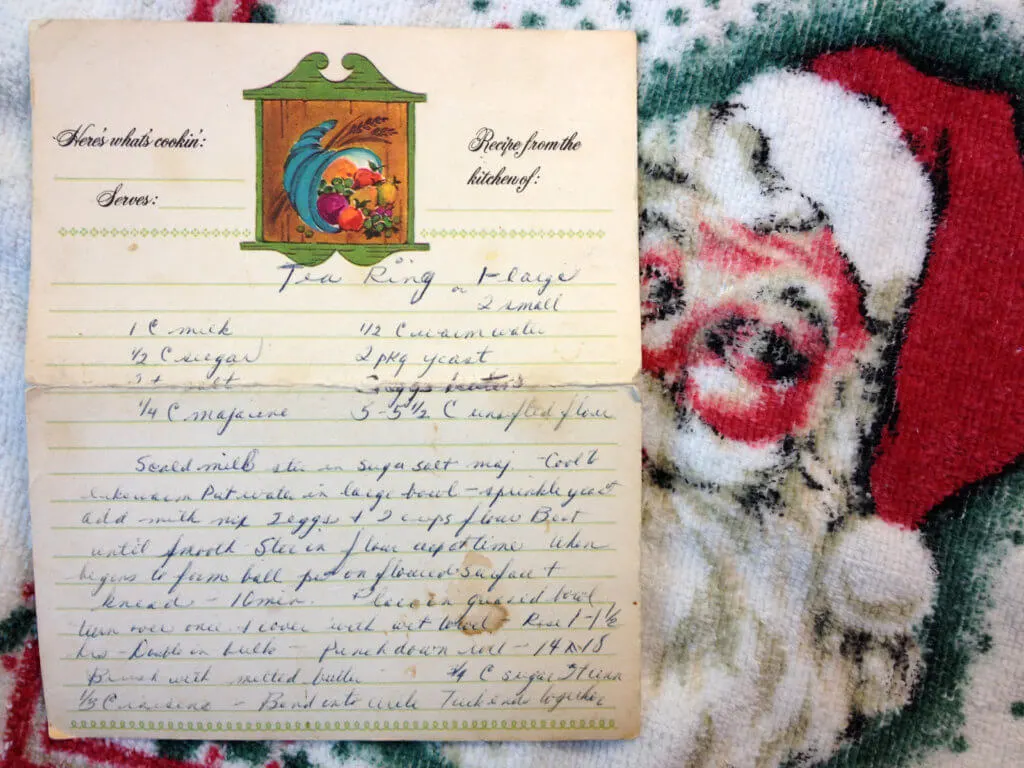 Here's what's cookin':
Recipe from the
kitchen of:
Serves:
Tea Ring or 1-large
2 small
1 C milk 1/2 C warm water
1/2 C sugar 2 pkg yeast
salt eggs
1/4 C majarine 5-5 1/2 C unsifted flour
Scald milk stir in sugar salt maj - Cool to
lukewarm Put water in large bowl - sprinkle yeast
add milk mix 2 eggs + 2 cups flour Beat
until smooth Stir in flour cup at time When
begins to form ball put on floured surface +
knead - 10 min Place in greased bowl
turn over once + cover with wet towel Rise 1-1 1/2
hrs - Double in bulk - punch down roll - 14 x 18
Brush with melted butter 3/4 C sugar
1/3 C raisins - Bend into circle Tuck ends together